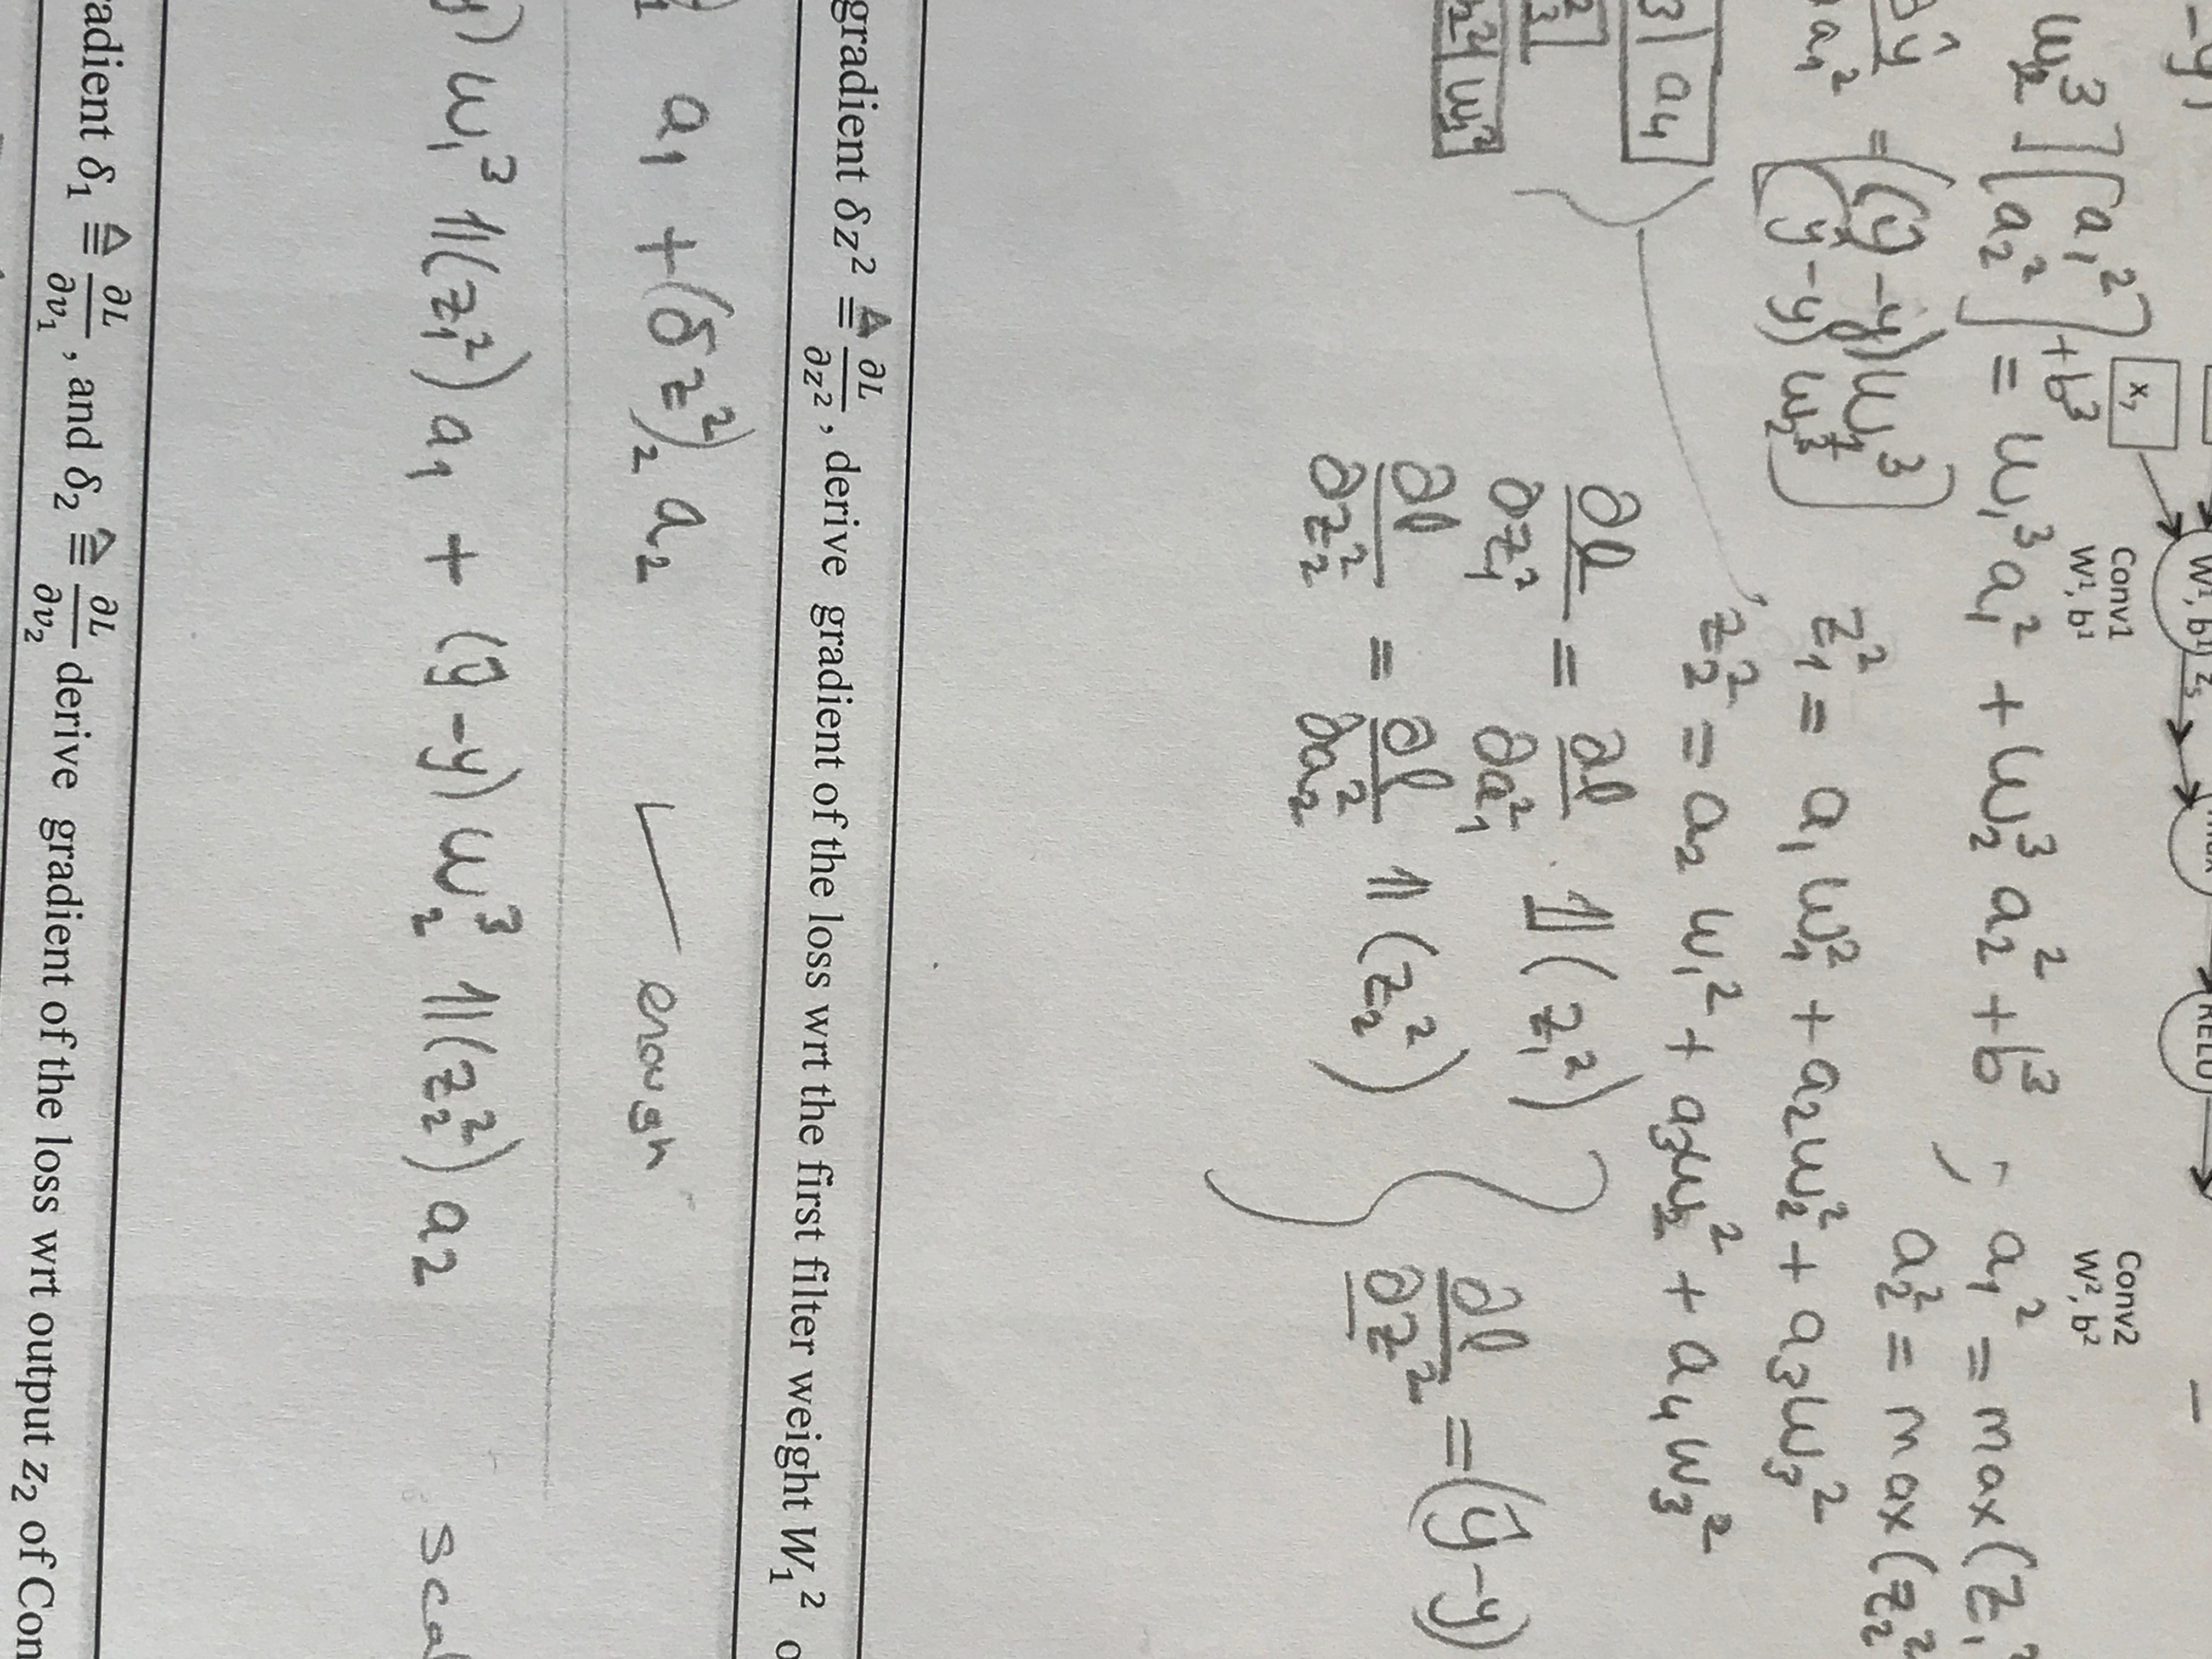 x₁
W¹, b¹
Conv1
W¹, b¹
Conv2
W², b²
w₂³] [a₁² a₂²] + b³ = w₁³a₁² + w₂³a₂² + b³ ; a₁² = max(z₁²
a₂² = max(z₂²
∂ŷ
∂a₁² = ((ŷ-y)w₁³
(ŷ-y)w₂³)
z₁² = a₁w₁² + a₂w₂² + a₃w₃²
z₂² = a₂w₁² + a₃w₂² + a₄w₃²
a₄
w₄²
∂l/∂z₁² = ∂l/∂a₁² · 𝟙(z₁²)
∂l/∂z₂² = ∂l/∂a₂² 𝟙(z₂²)
∂l/∂z² = (ŷ-y)
gradient δz² ≜ ∂L/∂z², derive gradient of the loss wrt the first filter weight W₁²
a₁ + (δz²)₂ a₂ enough
y) w₁³ 𝟙(z₁²) a₁ + (ŷ-y) w₂³ 𝟙(z₂²) a₂
adient δ₁ ≜ ∂L/∂v₁, and δ₂ ≜ ∂L/∂v₂ derive gradient of the loss wrt output z₂ of Con